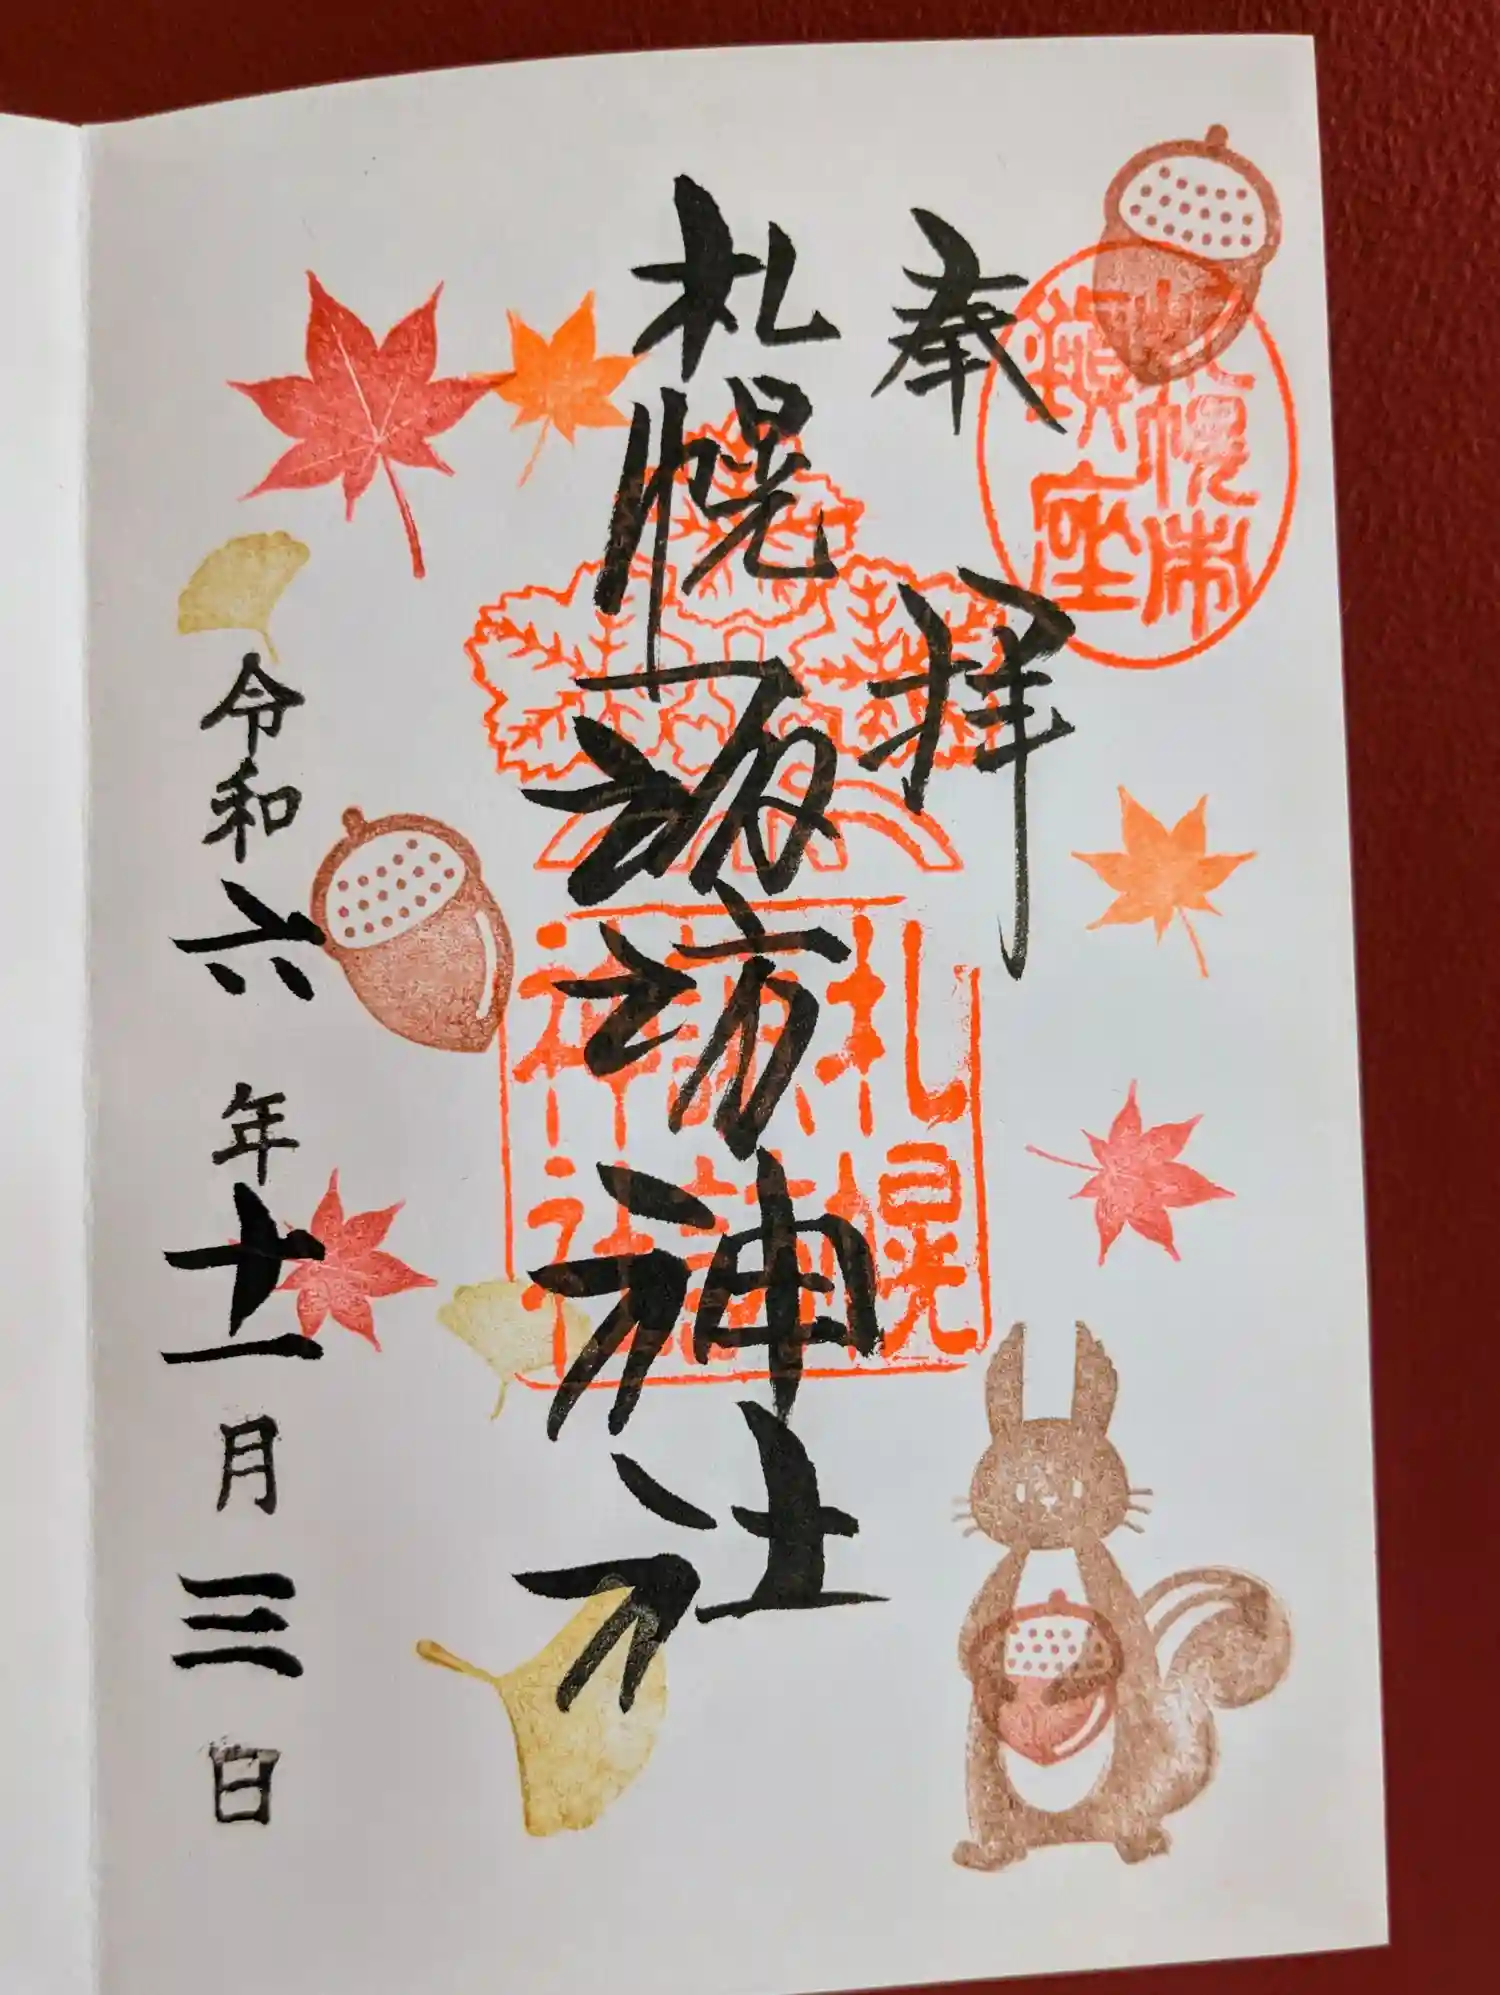 奉拝
札幌諏訪神社
令和六年十一月三日
札幌市鎮座
札幌諏訪神社